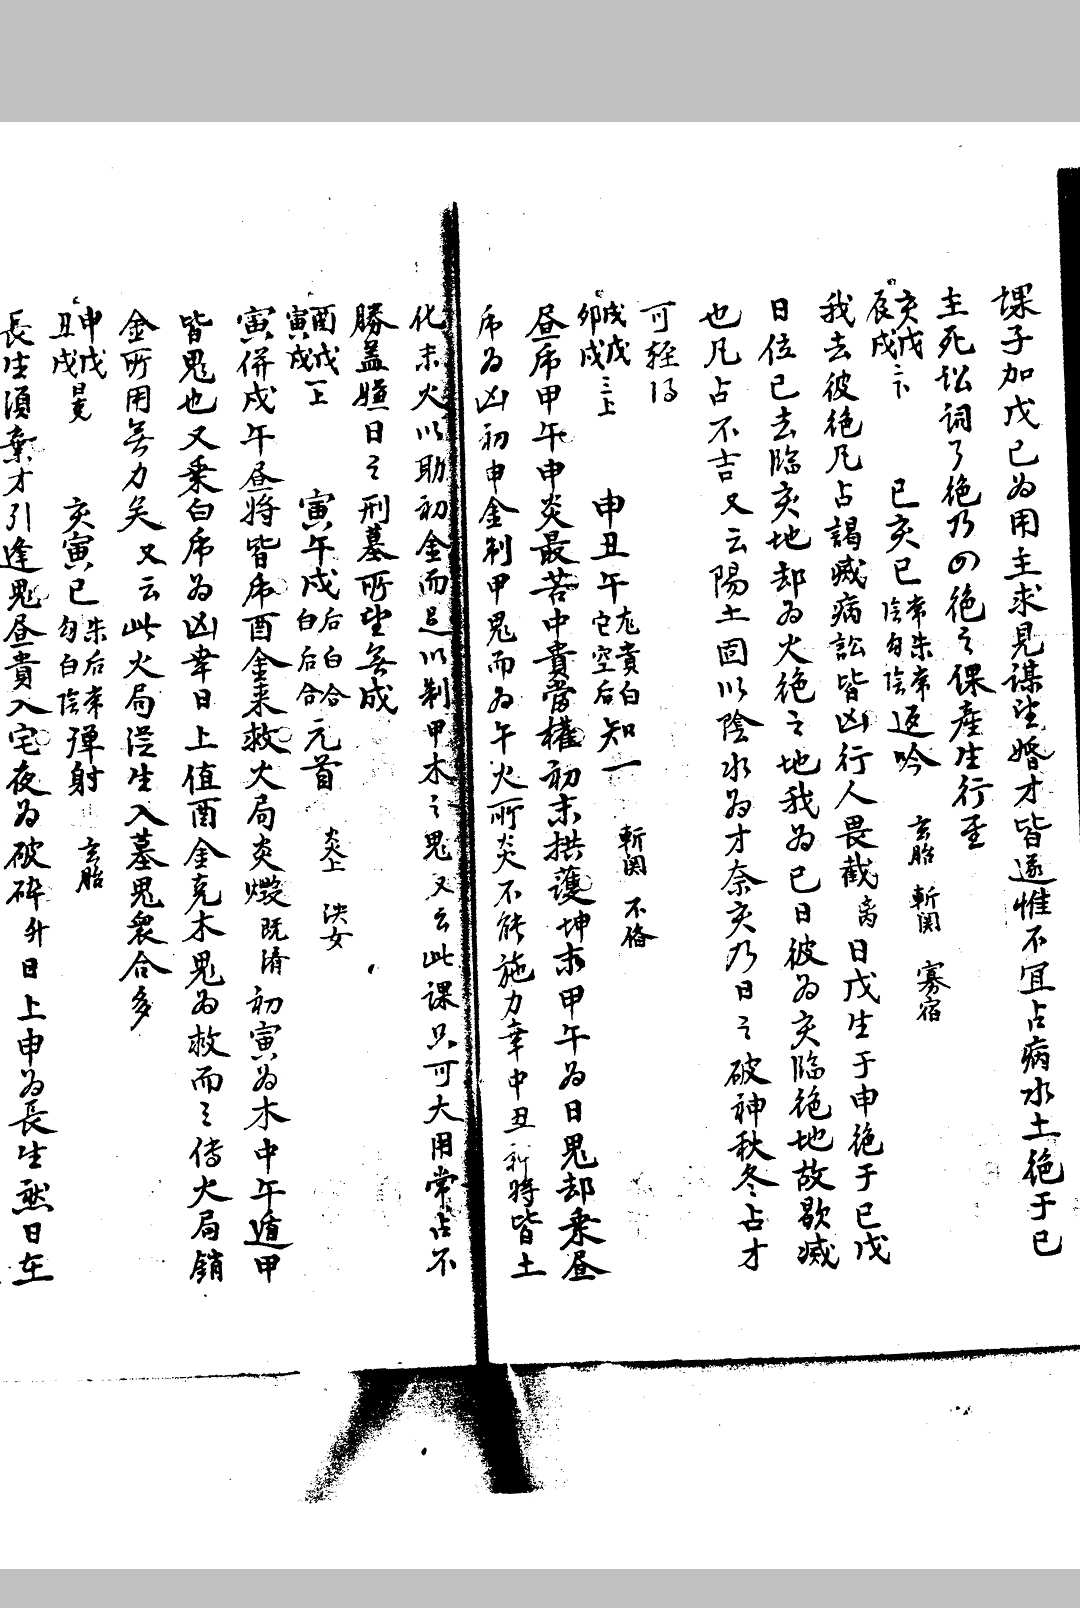 課子加戊己為用主求見謀望婚才皆遂惟不宜占病水土絶于巳
主死訟詞了絶乃四絶之課産生行至
亥戊
辰戌三下 巳亥巳 常朱常 陰勾陰 返吟 玄胎 斬関 寡宿
我去彼絶凡占謁臧病訟皆凶行人畏截离日戊生于申絶于巳戊
日位巳去臨亥地却為火絶之地我為巳日彼為亥臨絶地故歇臧
也凡占不吉又云陽土固以陰水為才奈亥乃日之破神秋冬占才
可輕得
戌戊
卯戌三上 申丑午 龙貴白 它空后 知一 斬関 不俻
昼虎甲午申炎最苦中貴當權初末拱護坤求甲午為日鬼却乗昼
虎為凶初申金制甲鬼而為午火所炎不能施力幸中丑將皆土
化末火以助初金而足以制甲木之鬼又云此課只可大用常占不
勝盖嫌日之刑墓所望無成
酉戊
寅戌一上 寅午戌 后白合 白后合 元首 炎上 泆女
寅併戌午昼將皆虎酉金来救火局炎燬既濟初寅為木中午遁甲
皆鬼也又乗白虎為凶幸日上值酉金克木鬼為救而三傳火局銷
金所用無力矣又云此火局従生入墓鬼衆合多
申戊
丑戌昴 亥寅巳 朱后常 勾白陰 弾射 玄胎
長生須棄才引逢鬼昼貴入宅夜為破碎升日上申為長生然日在